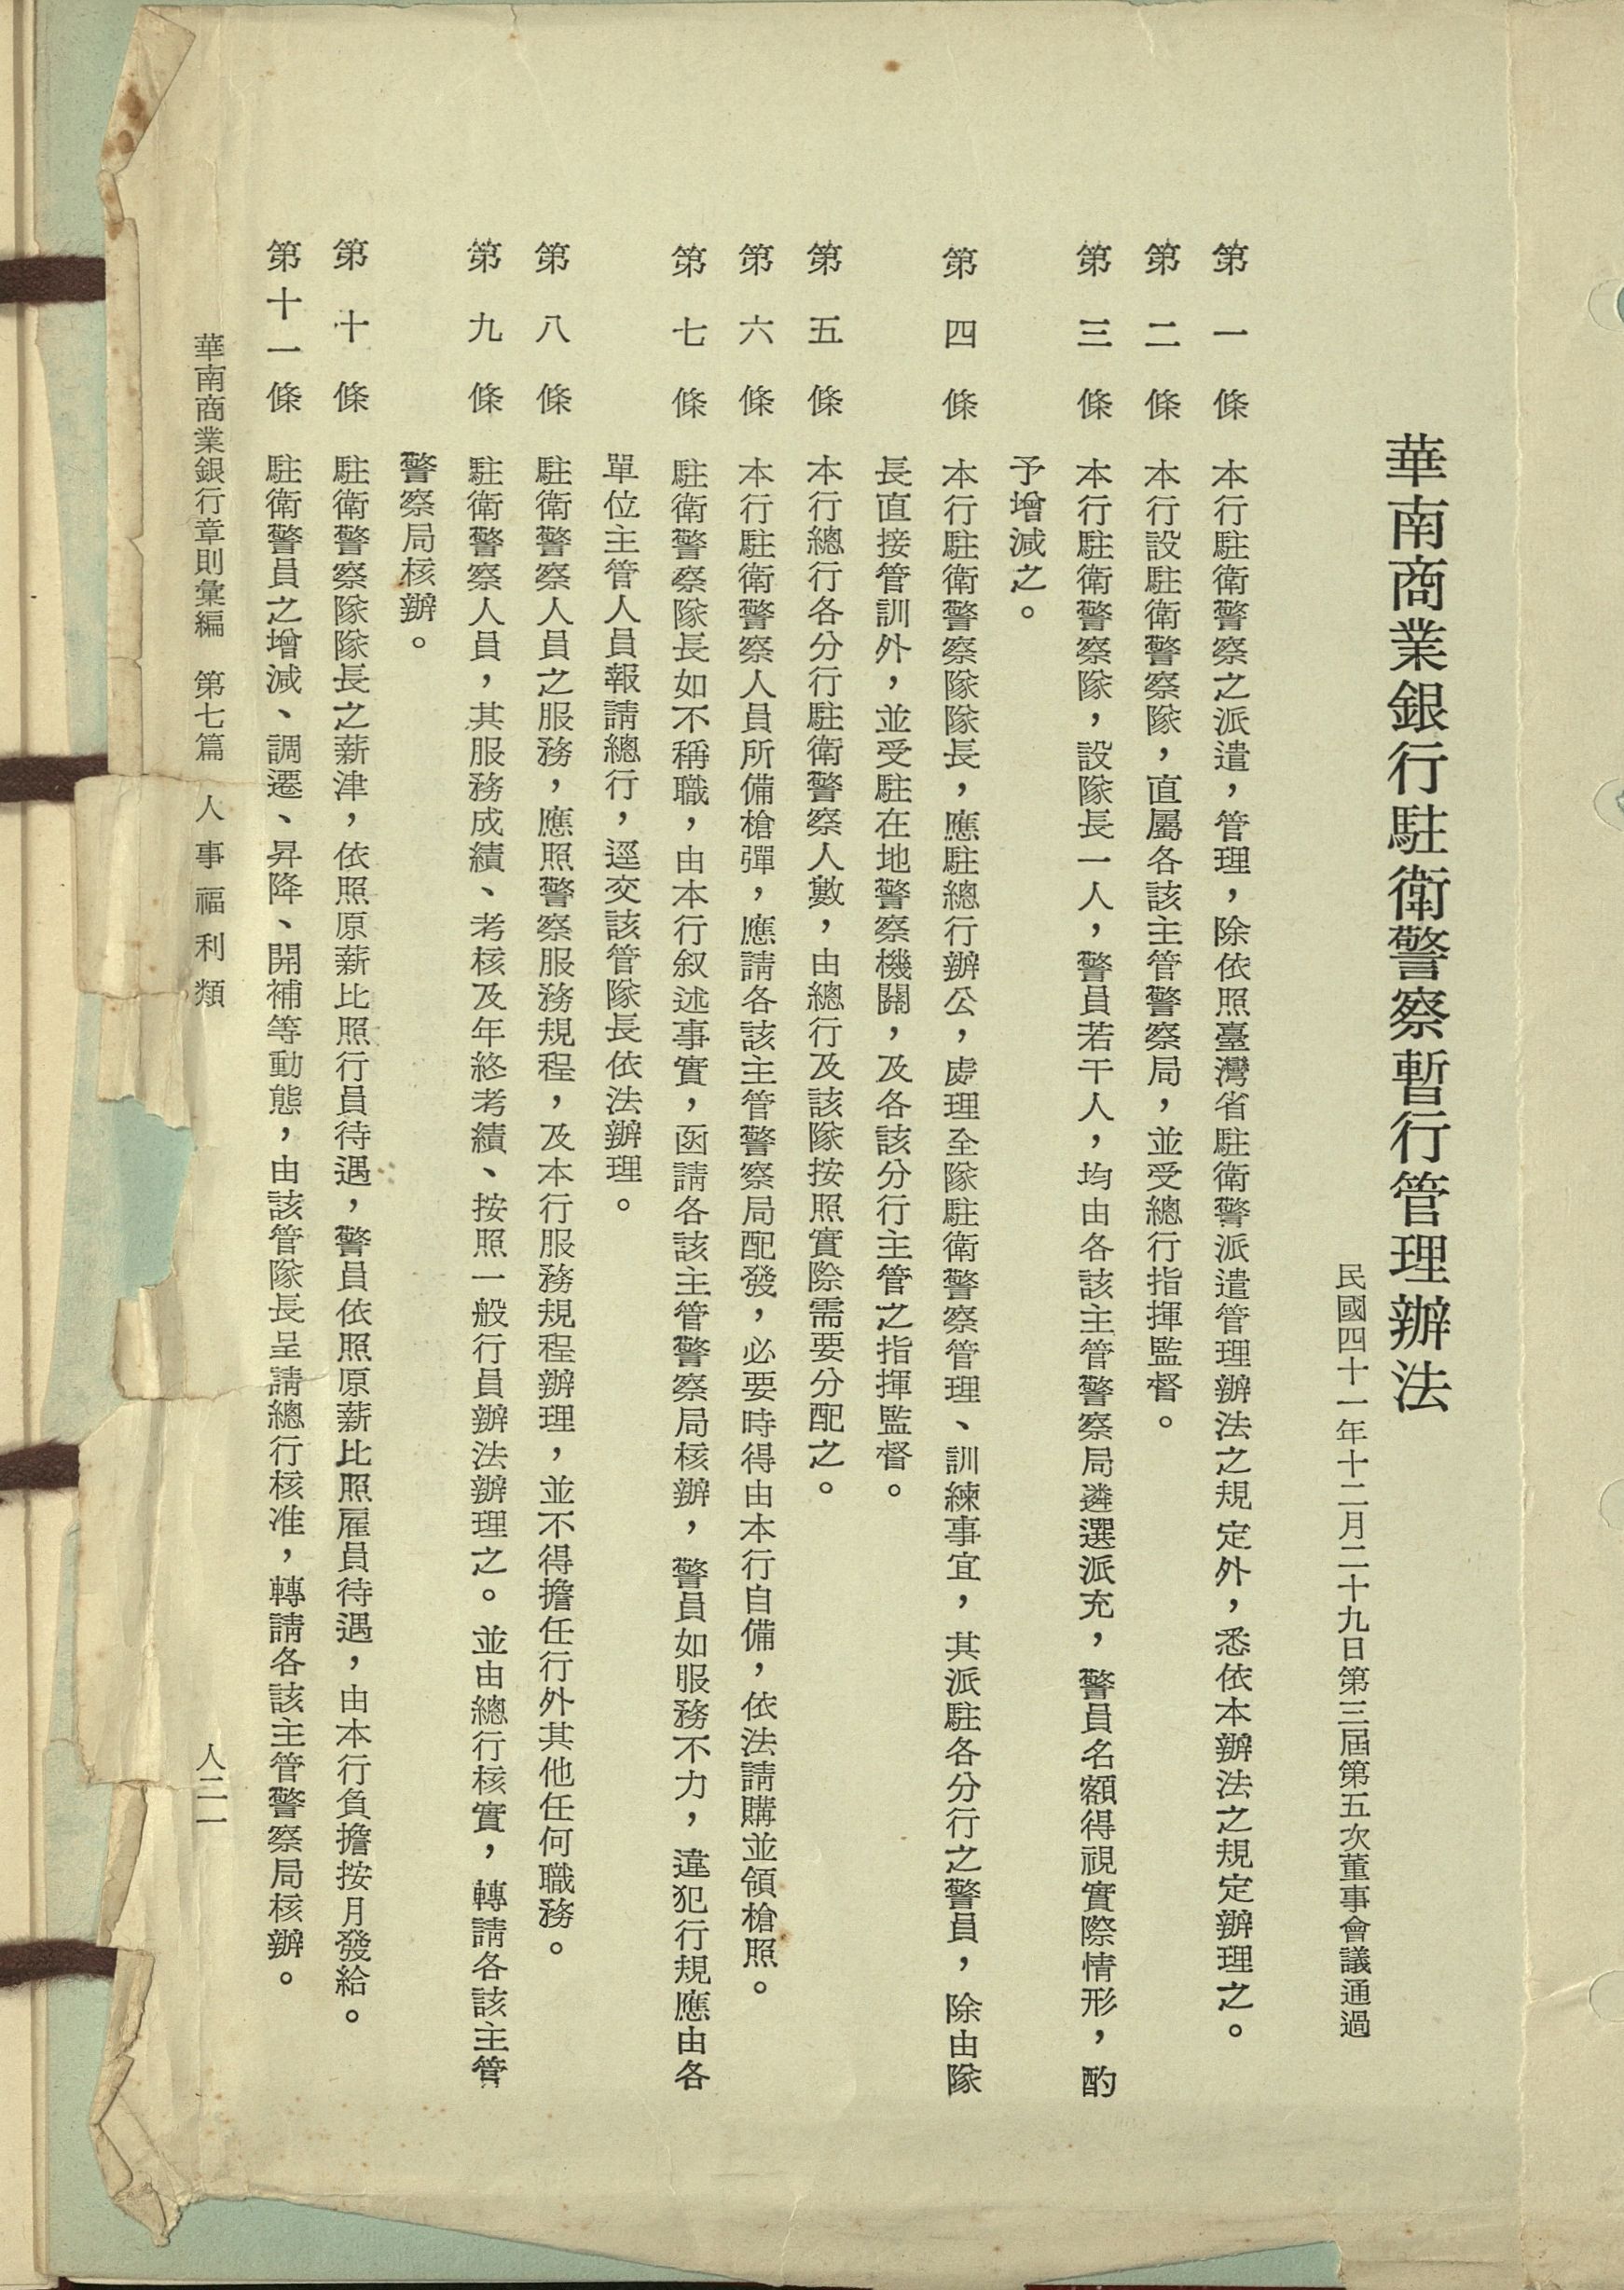 華南商業銀行駐衛警察暫行管理辦法
民國四十一年十二月二十九日第三屆第五次董事會議通過
第一條　本行駐衛警察之派遣，管理，除依照臺灣省駐衛警派遣管理辦法之規定外，悉依本辦法之規定辦理之。
第二條　本行設駐衛警察隊，直屬各該主管警察局，並受總行指揮監督。
第三條　本行駐衛警察隊，設隊長一人，警員若干人，均由各該主管警察局遴選派充，警員名額得視實際情形，酌
予增減之。
第四條　本行駐衛警察隊隊長，應駐總行辦公，處理全隊駐衛警察管理、訓練事宜，其派駐各分行之警員，除由隊
長直接管訓外，並受駐在地警察機關，及各該分行主管之指揮監督。
第五條　本行總行各分行駐衛警察人數，由總行及該隊按照實際需要分配之。
第六條　本行駐衛警察人員所備槍彈，應請各該主管警察局配發，必要時得由本行自備，依法請購並領槍照。
第七條　駐衛警察隊長如不稱職，由本行叙述事實，函請各該主管警察局核辦，警員如服務不力，違犯行規應由各
單位主管人員報請總行，逕交該管隊長依法辦理。
第八條　駐衛警察人員之服務，應照警察服務規程，及本行服務規程辦理，並不得擔任行外其他任何職務。
第九條　駐衛警察人員，其服務成績、考核及年終考績、按照一般行員辦法辦理之。並由總行核實，轉請各該主管
警察局核辦。
第十條　駐衛警察隊隊長之薪津，依照原薪比照行員待遇，警員依照原薪比照雇員待遇，由本行負擔按月發給。
第十一條　駐衛警員之增減、調遷、昇降、開補等動態，由該管隊長呈請總行核准，轉請各該主管警察局核辦。
華南商業銀行章則彙編　第七篇　人事福利類
人二一